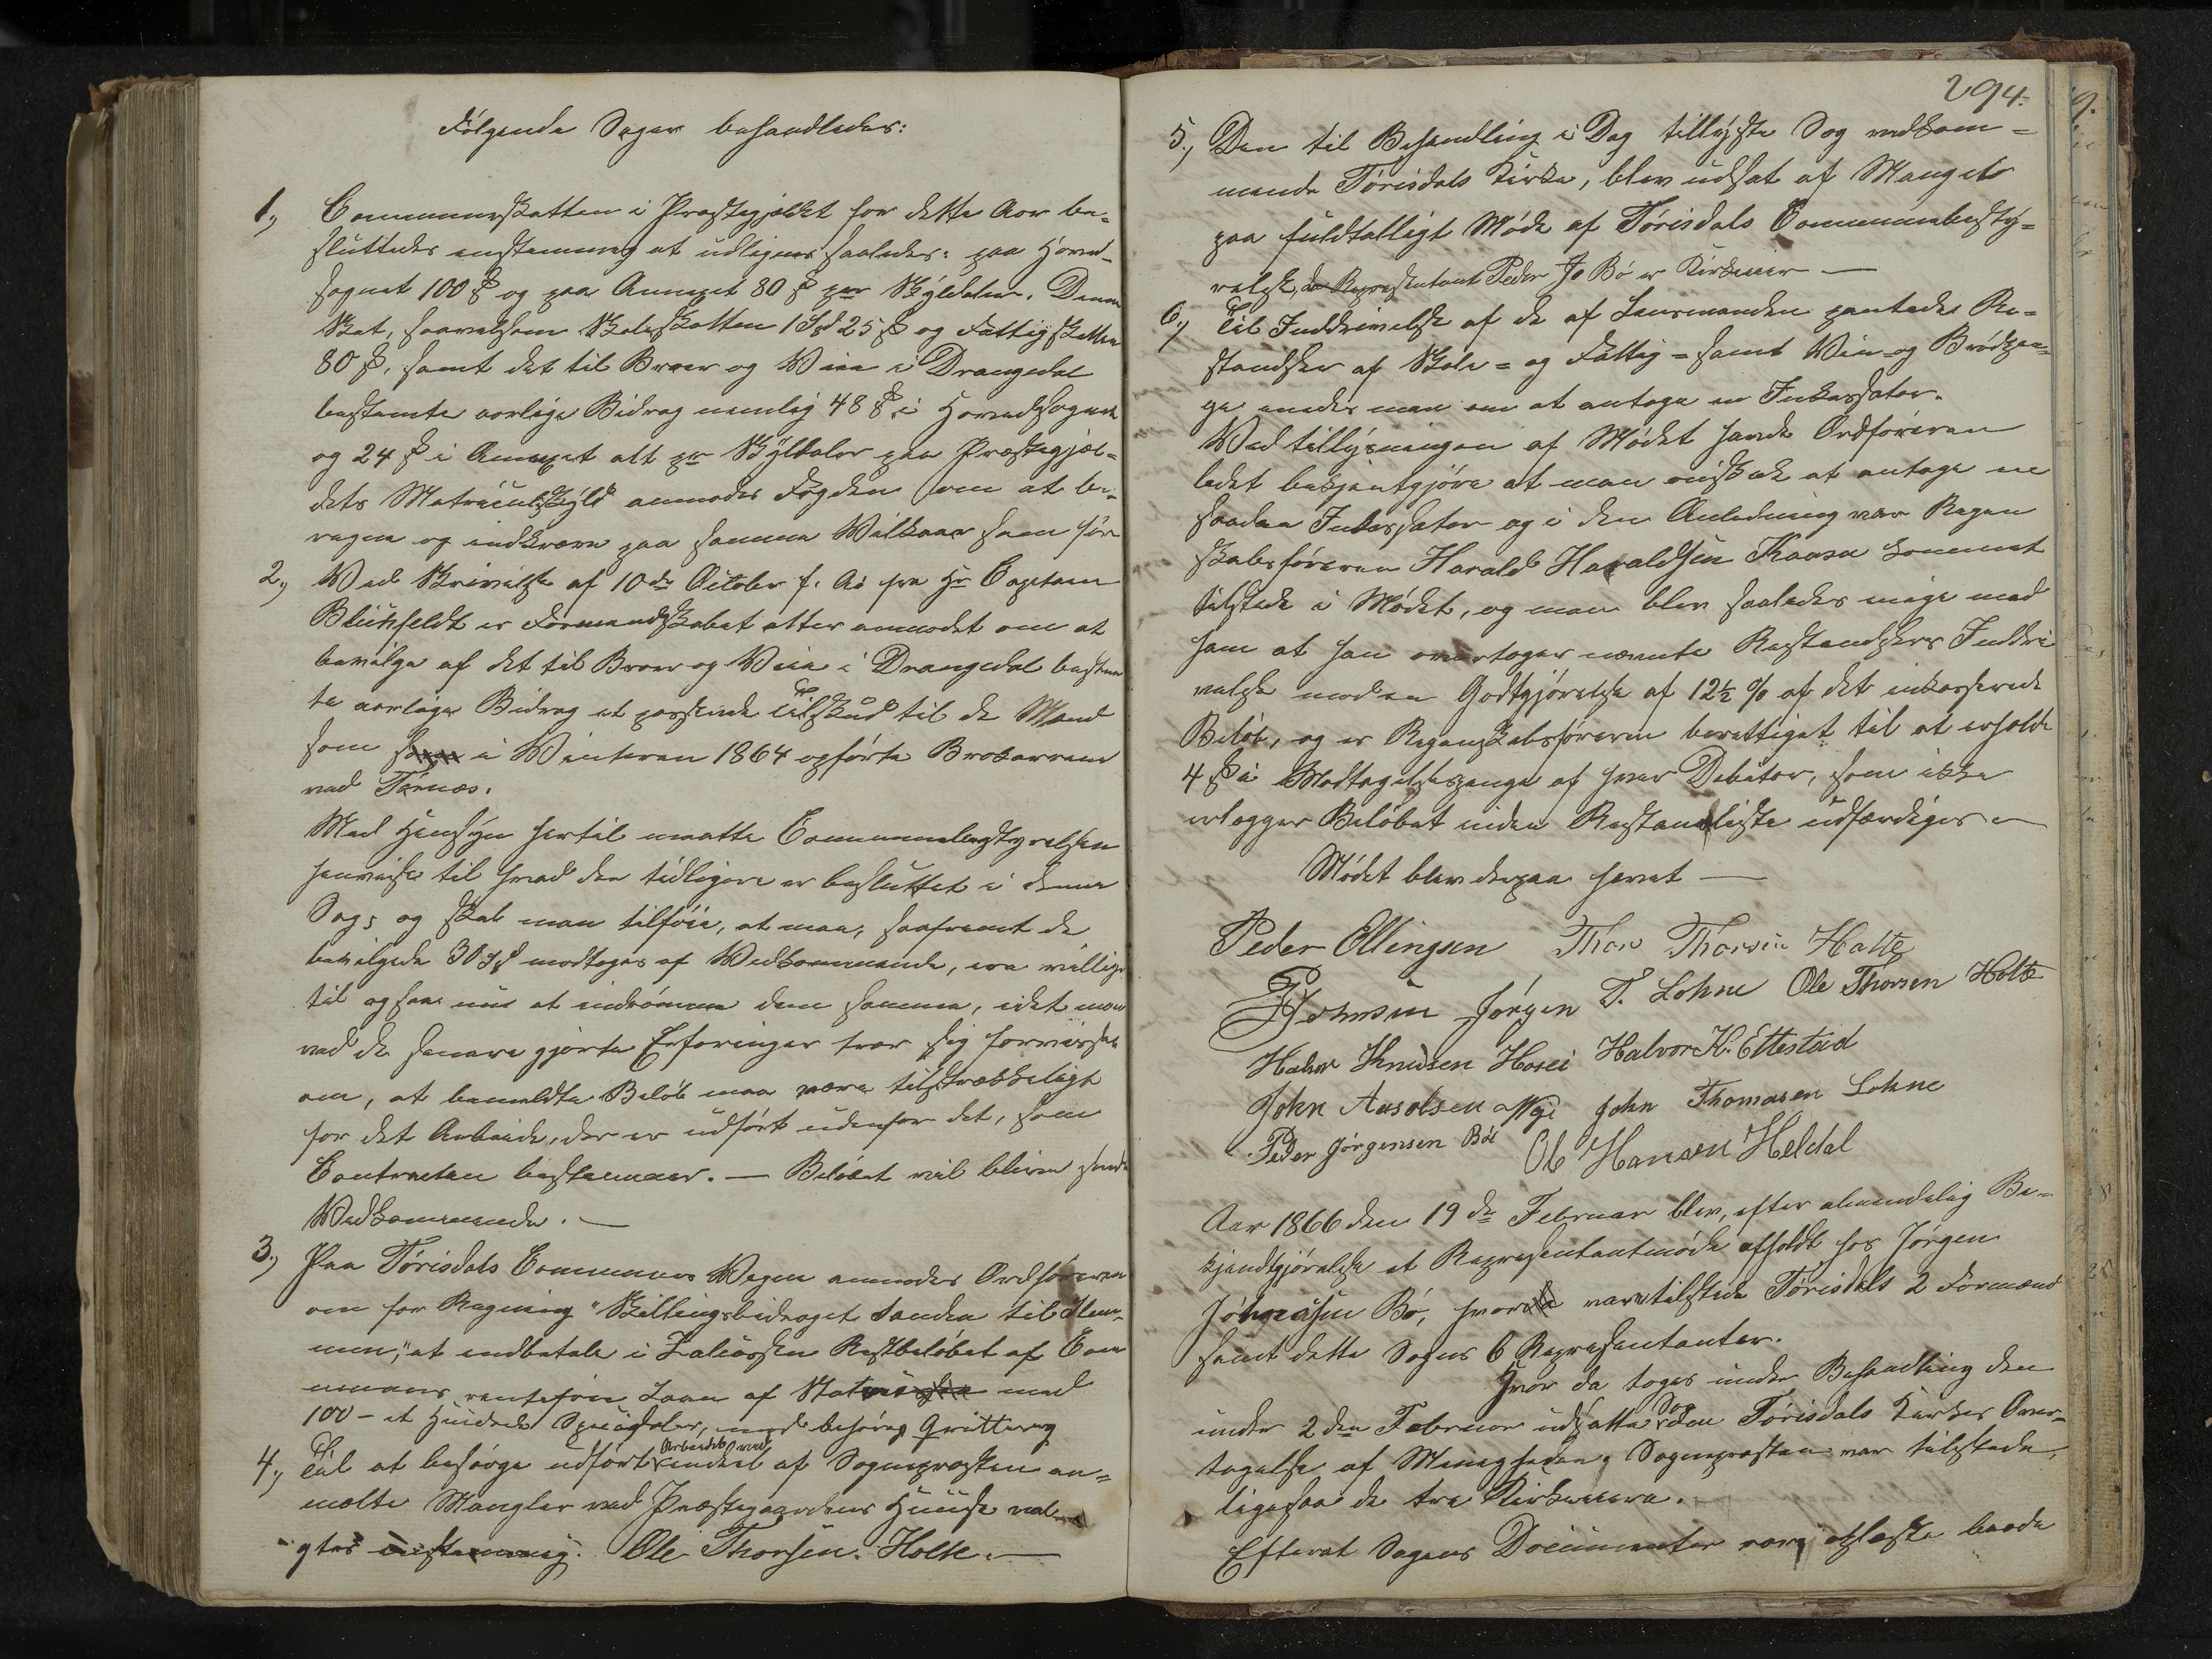 Følgende Sager behandledes:
1, Communeskatten i Præstegjeldet for dette Aar be-
sluttedes enstemmig at udlignes saaledes: paa Hoved-
sognet 100 ß og paa Annexet 80 ß pr Skylddaler. Denne
Skat, saavelsom Skoleskatten 1 Spd 25 ß og Fattigskatten
80 ß, samt det til Broer og Veie i Drangedal
bestemte aarlige Bidrag nemlig 48 ß i Hovedsognet
og 24 ß i Annexet alt pr Skylddaler paa Præstegjel-
dets Matriculskyld anmodes Fogden om at be-
regne og indkræve paa samme Vilkaar som før
2, Ved Skrivelse af 10de October f. A. fra Hr Capitain
Blichfeldt er Formandskabet atter anmodet om at
bevilge af det til Broer og Veie i Drangedal bestem
te aarlige Bidrag et passende Tilskud til de Mænd
som i Vinteren 1864 opførte Brokarrene
ved Tørnæs.
Med Hensyn hertil maatte Communebestyrelsen
henvise til hvad den tidligere er besluttet i denne
Sag, og skal man tilføie, at man, saafremt de
bevilgede 30 Spd modtages af Vedkommende, ere villige
til ogsaa nu at indrømme dem samme, idet man
ved de senere gjorte Erfaringer tror sig forvisset
om, at bemeldte Beløb maa være tilstrækkeligt
for det Arbeide, der er udført udenfor det, som
Contracten bestemmer. — Beløbet vil blive sendt
Vedkommende. —
3, Paa Tørisdals Communes Vegne anmodes Ordføreren
om for Regning "Skillingsbidraget Landen til
at indbetale i Restbeløbet af Com
munens rentefrie Laan af med
100 – et Hundrede Speciedaler, mod behørig Qvittering
4, Til at besørge udført Arbeidet ved endeel af Sognepræsten an-
mældte Mangler ved Præstegaardens Huuse val-
gtes enstemmig. Ole Thorsen Holte. —
294.
5, Den til Behandling i Dag tillyste Sag vedkom=
mende Tørisdals Kirke, blev udsat af Mangel
paa fuldtalligt Møde af Tørisdals Communebesty=
relse, da Repræsentant Peder Jø Bø er Kirkeeier —
6, Til Inddrivelse af de af Lensmanden pantede Re=
standser af Skole= og Fattig= samt Vei= og Brodpen-
ge enedes man om at antage en Inkassator.
Ved tillysningen af Mødet havde Ordføreren
ladet bekjentgjøre at man ønskede at antage en
saadan Inkassator og i den Anledning var Regen
skabsføreren Harald Haraldsen Kaasa kommet
tilstede i Mødet, og man blev saaledes enige med
ham at han overtager nævnte Restandsers Inddri
velse mod en Godtgjørelse af 12½ % af det inkasserede
Beløb, og er Regnskabsføreren berettiget til at erholde
4 ß i Modtagelsespenge af hver Debitor, som ikke
erlægger Beløbet inden Restanseliste udfærdiges —
Mødet blev derpaa hævet —
Peder Ellingsen Thor Thorsen Holte
Jørgen T. Lohne Ole Thorsen Holte
Halvor Knudsen Hosei Halvor K. Ettestad
John Aasolsen John Thomasen Lohne
Peder Jørgensen Bøe Ole Hansen Heldal
Aar 1866 den 19de Februar blev, efter almindelig Be-
kjendtgjørelse et Repræsentantmøde afholdt hos Jørgen
Bø, hvor vare tilstede Tørisdals 2 Formænd
samt dette Sogns 6 Repræsentanter.
Hvor da toges under Behandling den
under 2den Februar udsatte Sag om Tørisdals Kirkes Over-
tagelse af Menigheden. Sognepræsten var tilstede,
ligesaa de tre Kirkeeiere.
Efterat Sagens Documenter vare oplæste baade